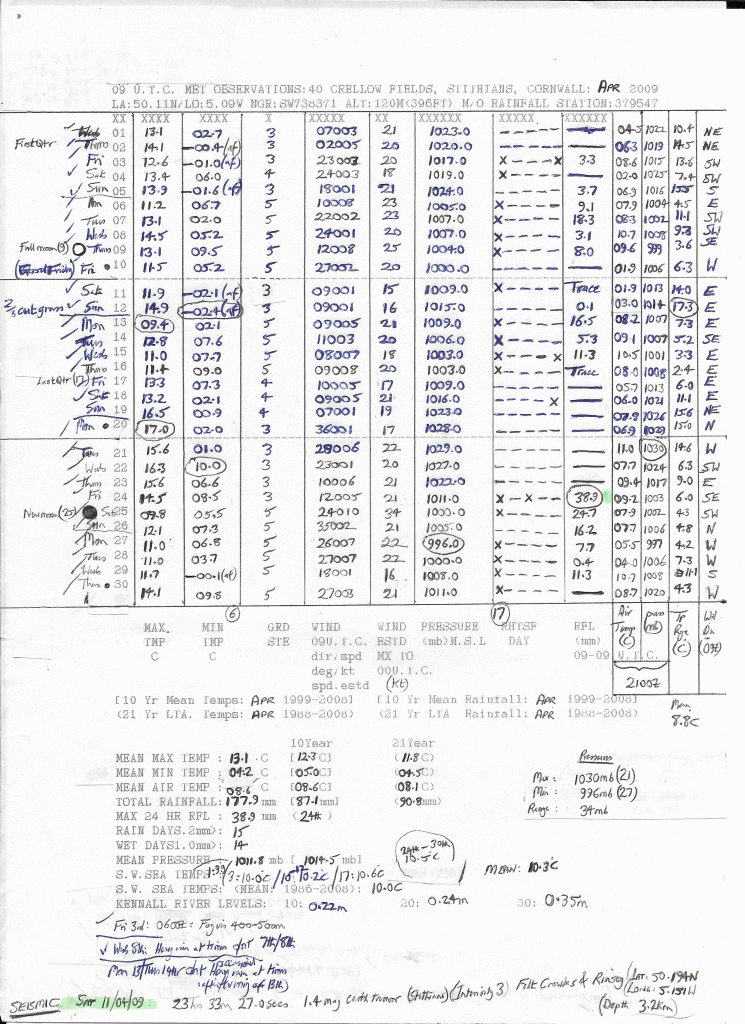 09 U.T.C. MET OBSERVATIONS:40 CRELLOW FIELDS, STITHIANS, CORNWALL: APR 2009
LA:50.11N/LO:5.09W NGR:SW738371 ALT:120M(396FT) M/O RAINFALL STATION:379547
XX XXXXX XXXX X XXXXX XX XXXXXX XXXXX XXXXXX
First Qtr Wed 01 13.1 02.7 3 07003 21 1023.0 ----- — 04.5 1022 10.4 NE
Thurs 02 14.1 -00.4(af) 3 02005 20 1020.0 ----- — 06.3 1019 14.5 NE
Fri 03 12.6 -01.0(af) 3 23003 20 1017.0 x---x 3.3 08.6 1015 13.6 SW
Sat 04 13.4 06.0 4 24003 18 1019.0 ----- — 02.0 1025 7.4 SW
Sun 05 13.9 -01.6(af) 5 18001 21 1024.0 ----- 3.7 06.9 1016 15.5 S
Mn 06 11.2 06.7 5 10008 23 1005.0 x---- 9.1 07.9 1004 4.5 E
Tues 07 13.1 02.0 5 22002 23 1007.0 x---- 18.3 08.3 1002 11.1 SW
Wed 08 14.5 05.2 5 24001 20 1007.0 x---- 3.1 10.7 1008 9.3 SW
Full moon (9) Thurs 09 13.1 09.5 5 12008 25 1004.0 x---- 8.0 09.6 999 3.6 SE
(Good Friday) Fri 10 11.5 05.2 5 27002 20 1000.0 ----- — 01.9 1006 6.3 W
Sat 11 11.9 -02.1(af) 3 09001 15 1009.0 ----- Trace 01.9 1013 14.0 E
cut grass Sun 12 14.9 -02.4(af) 3 09001 16 1015.0 ----- 0.1 03.0 1014 17.3 E
Mon 13 09.4 02.1 5 09005 21 1009.0 x---- 16.5 08.2 1007 7.3 E
Tues 14 12.8 07.6 5 11003 20 1006.0 x---- 5.3 09.1 1007 5.2 SE
Wed 15 11.0 07.7 5 08007 18 1003.0 x---x 11.3 10.5 1001 3.3 E
Thurs 16 11.4 09.0 5 09008 20 1003.0 x---- Trace 08.0 1008 2.4 E
Last Qtr (17) Fri 17 13.3 07.3 4 10005 17 1009.0 ----- — 05.7 1013 6.0 E
Sat 18 13.2 02.1 4 09005 21 1016.0 ----x — 06.0 1021 11.1 E
Sun 19 16.5 00.9 4 07001 19 1023.0 ----- — 07.8 1026 15.6 NE
Mon 20 17.0 02.0 3 36001 17 1028.0 ----- — 06.9 1029 15.0 N
Tues 21 15.6 01.0 3 28006 22 1029.0 ----- — 11.0 1030 14.6 W
Wed 22 16.3 10.0 3 23001 20 1027.0 ----- — 07.7 1024 6.3 SW
Thurs 23 15.6 06.6 3 10006 21 1022.0 ----- — 09.4 1017 9.0 E
Fri 24 14.5 08.5 3 12005 21 1011.0 x-x-- 38.9 09.2 1003 6.0 SE
New moon (25) Sat 25 09.8 05.5 5 24010 34 1000.0 x---- 24.7 07.9 1002 4.3 SW
Sun 26 12.1 07.3 5 35002 21 1005.0 ----- 16.2 07.7 1006 4.8 N
Mon 27 11.0 06.8 5 26007 22 996.0 x---- 7.7 05.5 997 4.2 W
Tues 28 11.0 03.7 5 27007 22 1000.0 x---- 0.4 04.0 1006 7.3 W
Wed 29 11.7 -00.1(af) 5 18001 16 1008.0 x---- 11.3 10.7 1008 11.1 S
Thurs 30 14.1 09.8 5 27003 21 1011.0 x---- — 08.7 1020 4.3 W
(6) (17)
MAX. MIN GRD WIND WIND PRESSURE RHTSF RFL Air Temp (C) pres (mb) Tp Rge (C) Wd Dn (09Z)
TMP TMP STE 09U.T.C. ESTD (mb)M.S.L DAY (mm)
C C dir/spd MX TO 09-09 U.T.C.
deg/kt 00U.T.C.
spd.estd (kt) 2100Z
[10 Yr Mean Temps: APR 1999-2008] [10 Yr Mean Rainfall: APR 1999-2008]
(21 Yr LTA. Temps: APR 1988-2008) (21 Yr LTA Rainfall: APR 1988-2008)
Mean 8.8C
10Year 21Year
MEAN MAX TEMP : 13.1 C [12.3C] (11.8C)
MEAN MIN TEMP : 04.2 C [05.0C] (04.5C)
MEAN AIR TEMP : 08.6 C [08.6C] (08.1C)
TOTAL RAINFALL: 177.9 mm [87.1mm] (90.8mm)
MAX 24 HR RFL : 38.9 mm (24th)
RAIN DAYS.2mm>: 15
WET DAYS1.0mm>: 14
MEAN PRESSURE 1011.8 mb [1014.5 mb]
Pressures
Max: 1030mb (21)
Min: 996mb (27)
Range: 34mb
24th-30th 10.5°C
S.W.SEA TEMPS: 3:10.0C / 10.2C / 17:10.6C MEAN: 10.3C
S.W. SEA TEMPS: (MEAN: 1986-2008): 10.0C
KENNALL RIVER LEVELS: 10: 0.22m 20: 0.24m 30: 0.35m
Fri 3rd: 0600Z: Fog vis 400-500m
Wed 8th: Heavy rain at times o/nt 7th/8th
Mon 13/Tues 14th o/nt Heavy rain at times
SEISMIC SAT 11/04/09: 23 hrs 33m 27.0secs 1.4 mag earth tremor (Stithians) (Intensity 3) Felt Crowlas & Rinsey LAT: 50.194N LONG: 5.151W
(Depth 3.2km)